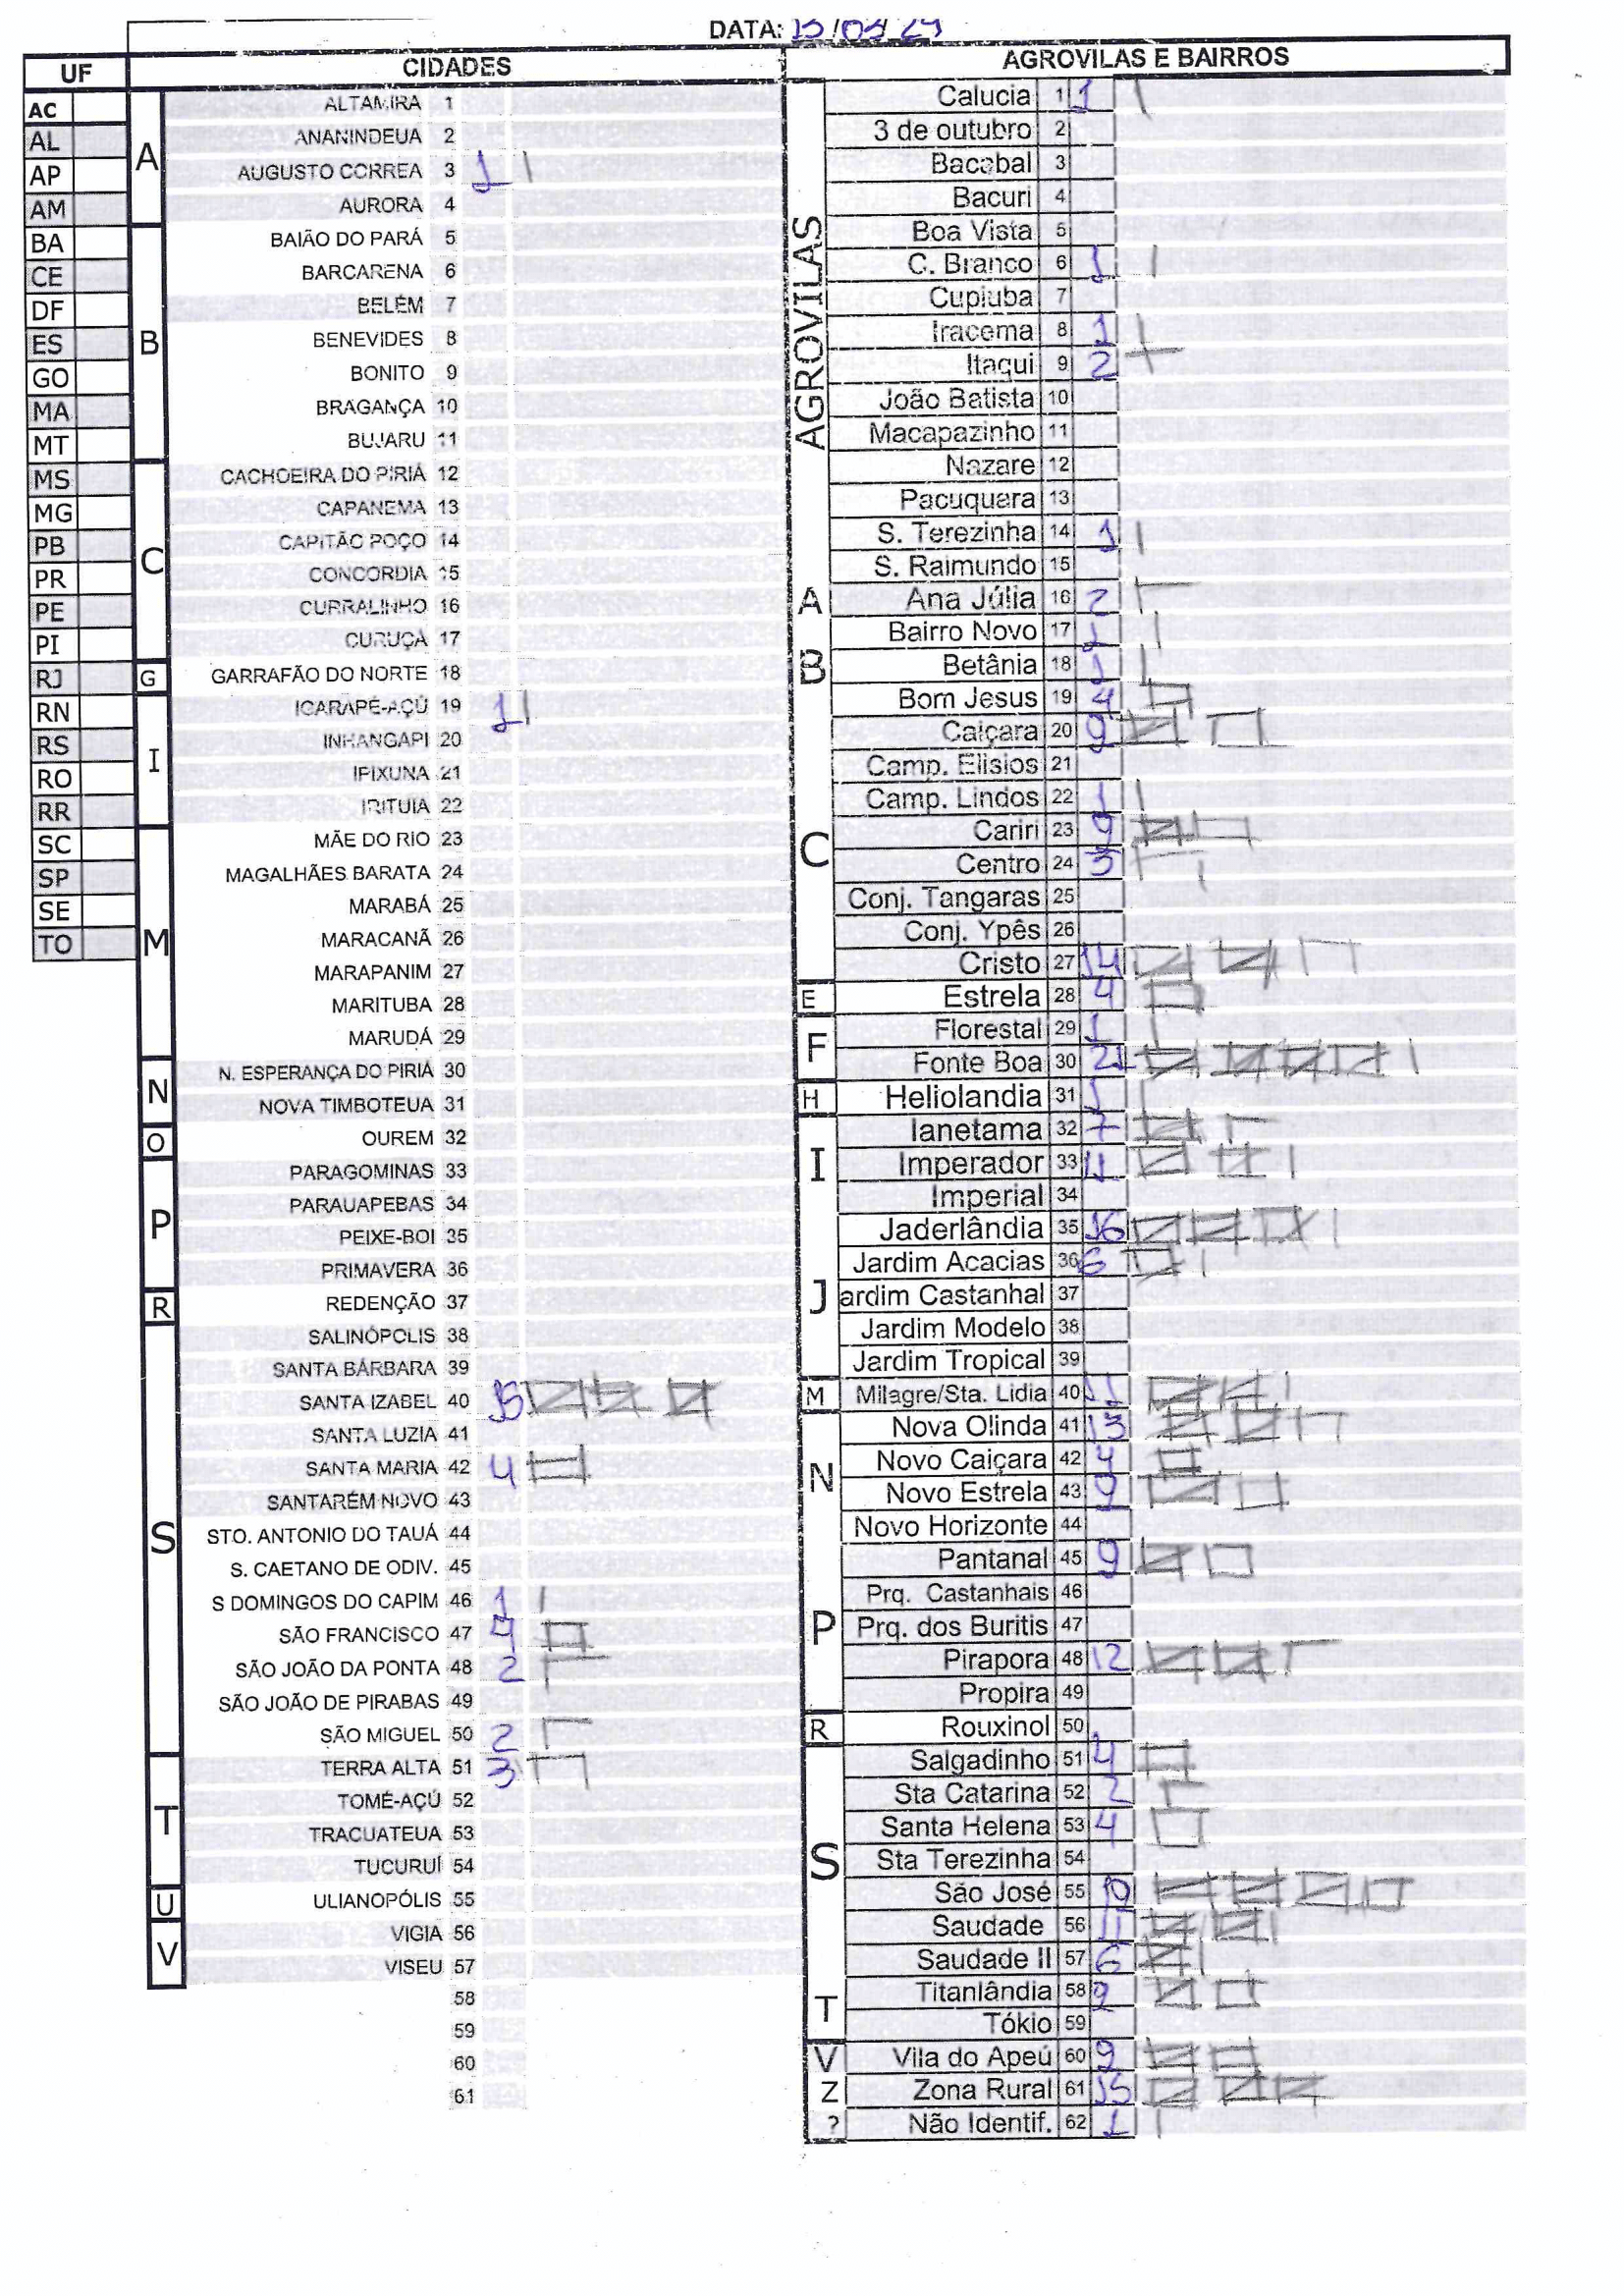 DATA: 15/03/24
UF
CIDADES
AGROVILAS E BAIRROS
AC
AL
AP
AM
BA
CE
DF
ES
GO
MA
MT
MS
MG
PB
PR
PE
PI
RJ
RN
RS
RO
RR
SC
SP
SE
TO
A
ALTAMIRA 1
ANANINDEUA 2
AUGUSTO CORREA 3 1
AURORA 4
B
BAIÃO DO PARÁ 5
BARCARENA 6
BELÉM 7
BENEVIDES 8
BONITO 9
BRAGANÇA 10
BUJARU 11
C
CACHOEIRA DO PIRIÁ 12
CAPANEMA 13
CAPITÃO POÇO 14
CONCORDIA 15
CURRALINHO 16
CURUÇÁ 17
G
GARRAFÃO DO NORTE 18
I
IGARAPÉ-AÇÚ 19 1
INHANGAPI 20
IPIXUNA 21
IRITUIA 22
M
MÃE DO RIO 23
MAGALHÃES BARATA 24
MARABÁ 25
MARACANÃ 26
MARAPANIM 27
MARITUBA 28
MARUDÁ 29
N
N. ESPERANÇA DO PIRIÁ 30
NOVA TIMBOTEUA 31
O
OUREM 32
P
PARAGOMINAS 33
PARAUAPEBAS 34
PEIXE-BOI 35
PRIMAVERA 36
R
REDENÇÃO 37
S
SALINÓPOLIS 38
SANTA BÁRBARA 39
SANTA IZABEL 40 15
SANTA LUZIA 41
SANTA MARIA 42 4
SANTARÉM NOVO 43
STO. ANTONIO DO TAUÁ 44
S. CAETANO DE ODIV. 45
S DOMINGOS DO CAPIM 46 1
SÃO FRANCISCO 47 4
SÃO JOÃO DA PONTA 48 2
SÃO JOÃO DE PIRABAS 49
SÃO MIGUEL 50 2
T
TERRA ALTA 51 3
TOMÉ-AÇÚ 52
TRACUATEUA 53
TUCURUÍ 54
U
ULIANOPÓLIS 55
V
VIGIA 56
VISEU 57
58
59
60
61
AGROVILAS
Calucia 1 1
3 de outubro 2
Bacabal 3
Bacuri 4
Boa Vista 5
C. Branco 6 1
Cupiuba 7
Iracema 8 1
Itaqui 9 2
João Batista 10
Macapazinho 11
Nazare 12
Pacuquara 13
S. Terezinha 14 1
S. Raimundo 15
A
Ana Júlia 16 2
B
Bairro Novo 17 1
Betânia 18 1
Bom Jesus 19 4
C
Caiçara 20 9
Camp. Elisios 21
Camp. Lindos 22 1
Cariri 23 9
Centro 24 3
Conj. Tangaras 25
Conj. Ypês 26
Cristo 27 14
E
Estrela 28 4
F
Florestal 29 1
Fonte Boa 30 21
H
Heliolandia 31 1
I
Ianetama 32 7
Imperador 33 11
Imperial 34
J
Jaderlândia 35 16
Jardim Acacias 36 6
ardim Castanhal 37
Jardim Modelo 38
Jardim Tropical 39
M
Milagre/Sta. Lidia 40 11
N
Nova Olinda 41 13
Novo Caiçara 42 4
Novo Estrela 43 9
Novo Horizonte 44
P
Pantanal 45 9
Prq. Castanhais 46
Prq. dos Buritis 47
Pirapora 48 12
Propira 49
R
Rouxinol 50
S
Salgadinho 51 4
Sta Catarina 52 2
Santa Helena 53 4
Sta Terezinha 54
São José 55
Saudade 56 11
Saudade II 57 6
T
Titanlândia 58 9
Tókio 59
V
Vila do Apeú 60 9
Z
Zona Rural 61 15
?
Não Identif. 62 1